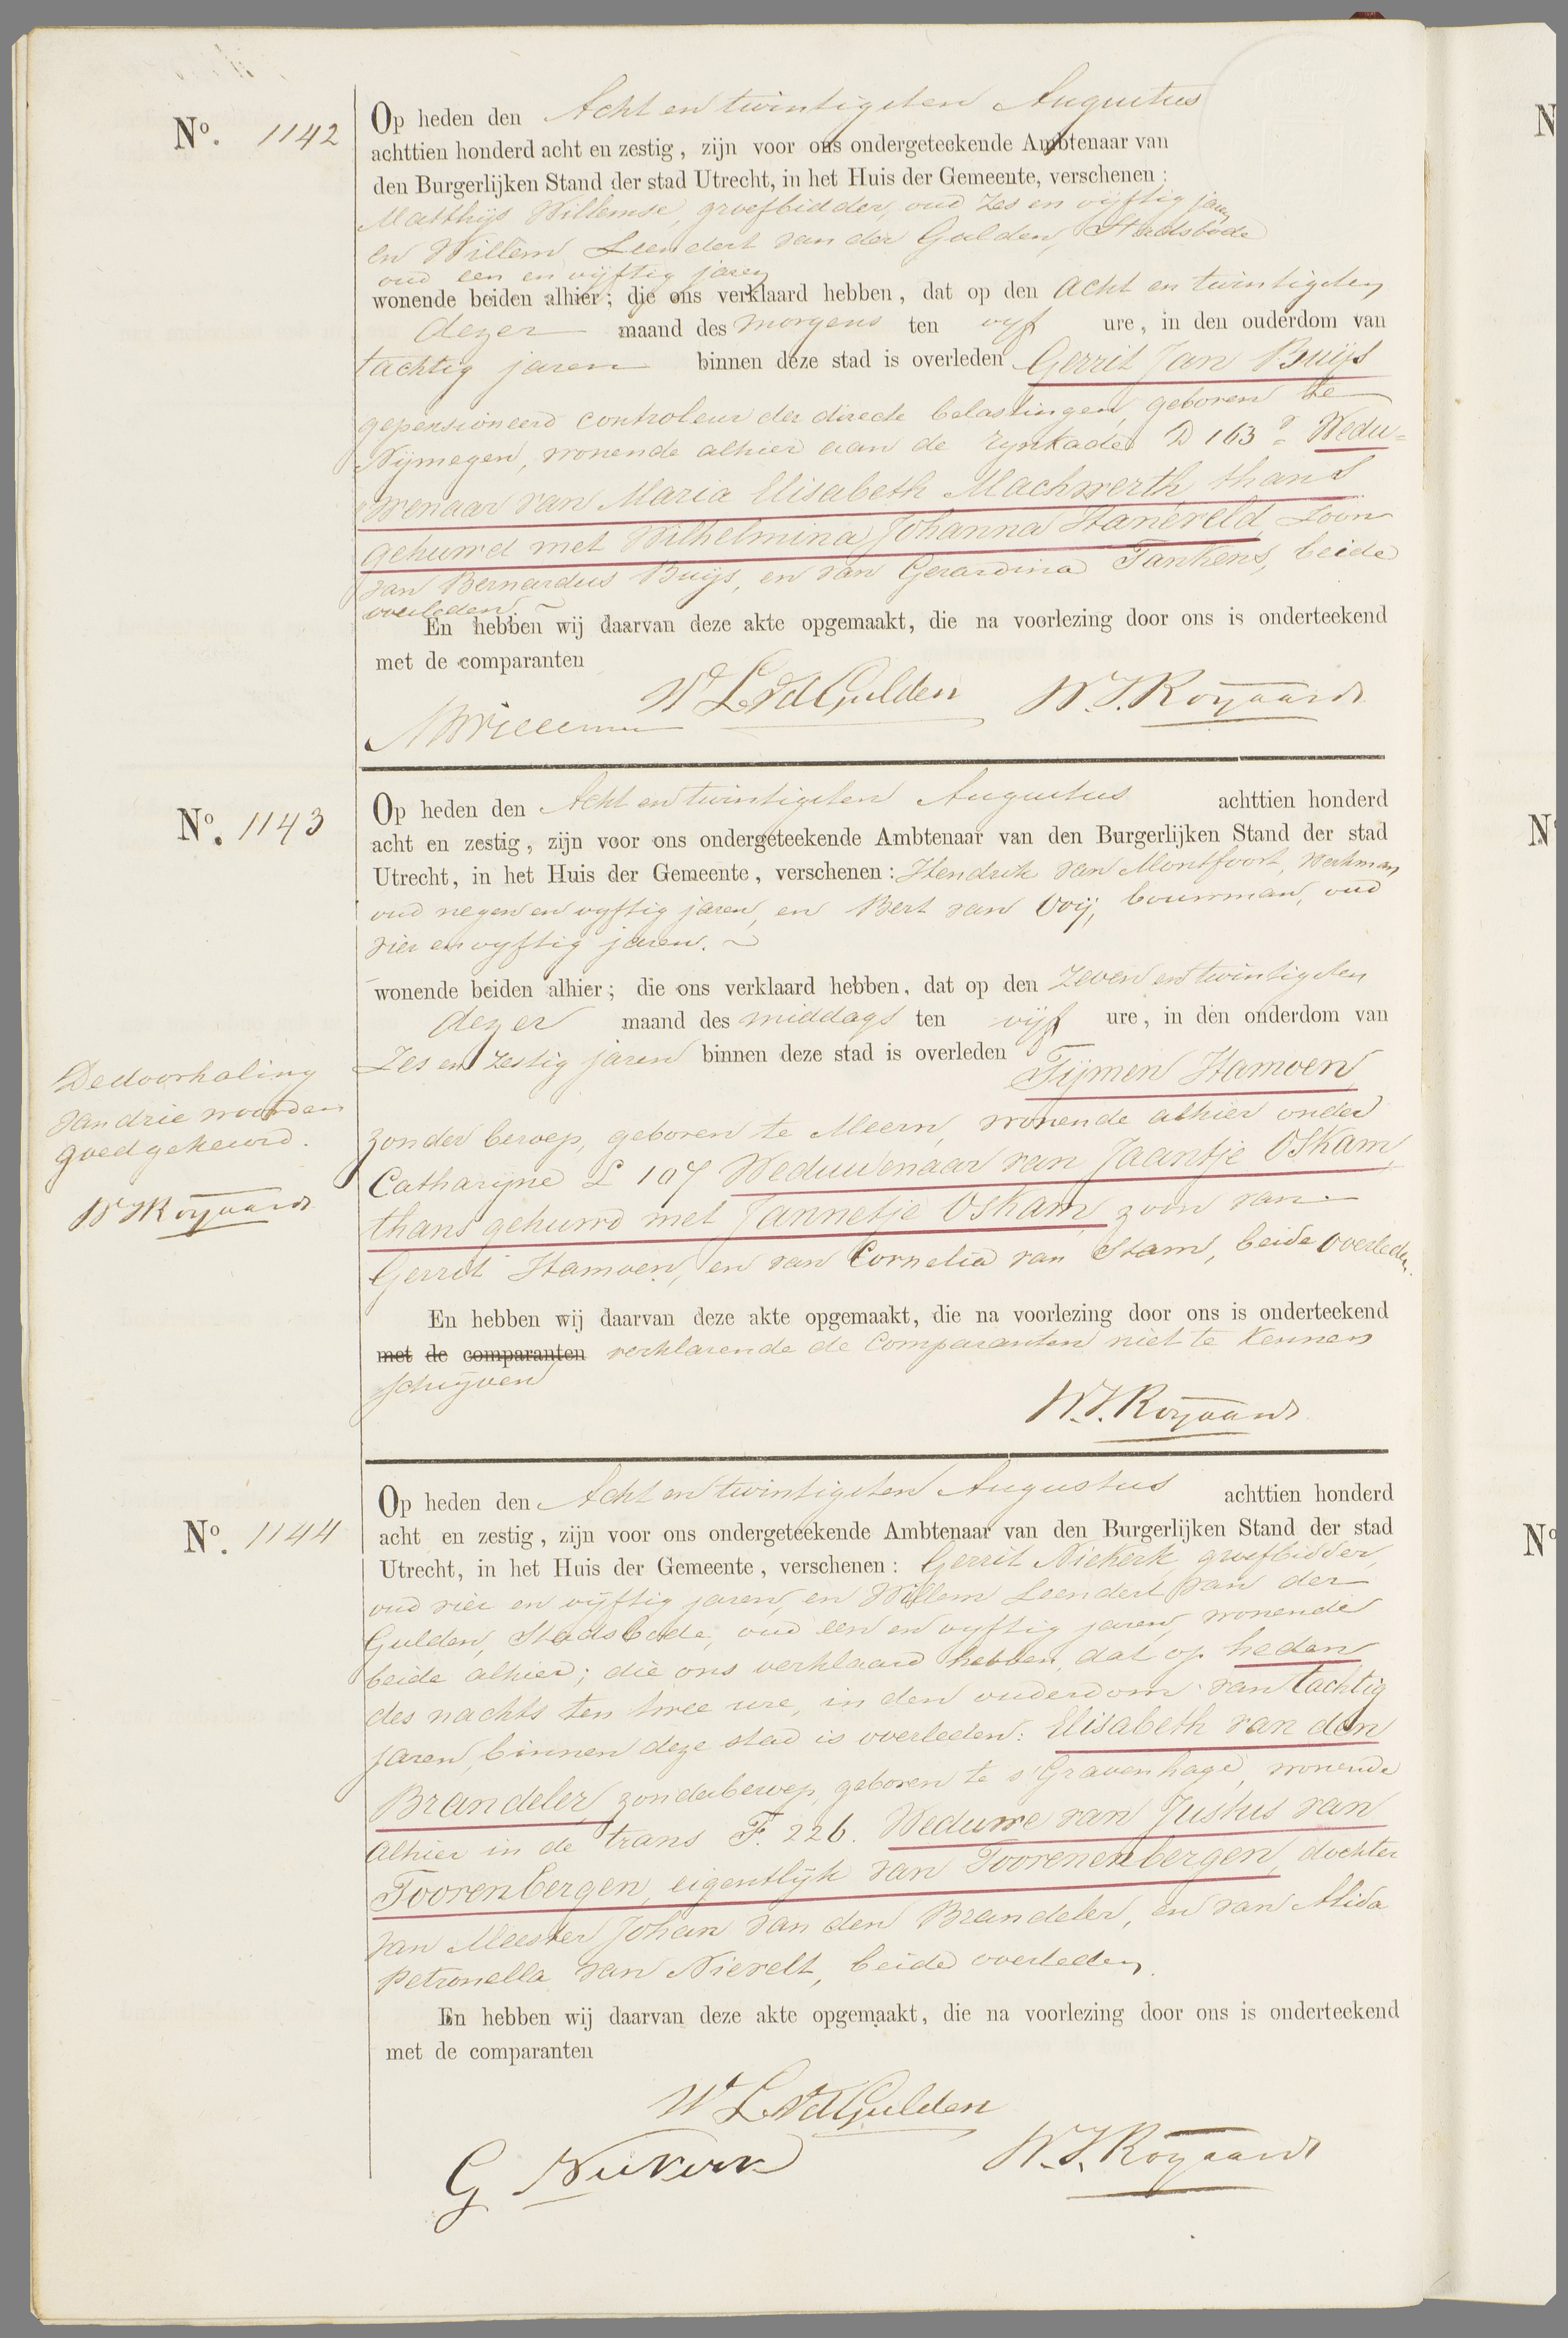 No. 1142
Op heden den Acht en twintigsten Augustus
achttien honderd acht en zestig, zijn voor ons ondergeteekende Ambtenaar van
den Burgerlijken Stand der stad Utrecht, in het Huis der Gemeente, verschenen:
Matthijs Willemse, groefbidder, oud zes en vijftig jaren
en Willem Leendert van der Gulden, Stadsbode
oud een en vijftig jaren
wonende beiden alhier; die ons verklaard hebben, dat op den acht en twintigsten
dezer maand des morgens ten vyf ure, in den ouderdom van
tachtig jaren binnen deze stad is overleden Gerrit Jan Buijs
gepensioneerd controleur der directe belastingen, geboren te
Nijmegen, wonende alhier aan de Rynkade D 163 Wedu=
wenaar van Maria Elisabeth Machwerth, thans
gehuwd met Wilhelmina Johanna Haneveld, zoon
van Bernardus Buijs, en van Gerardina Tankens, beide
overleden.
En hebben wij daarvan deze akte opgemaakt, die na voorlezing door ons is onderteekend
met de comparanten
W L vd Gulden W. J. Royaards
MWillemse
No. 1143
Op heden den Acht en twintigsten Augustus achttien honderd
acht en zestig, zijn voor ons ondergeteekende Ambtenaar van den Burgerlijken Stand der stad
Utrecht, in het Huis der Gemeente, verschenen: Hendrik van Montfoort, werkman
oud negen en vyftig jaren, en Bert van Ooij, bouwman, oud
vier en vyftig jaren.
wonende beiden alhier; die ons verklaard hebben, dat op den zeven en twintigsten
dezer maand des middags ten vijf ure, in den onderdom van
Zes en zestig jaren binnen deze stad is overleden Tijmen Hamoen
zonder beroep, geboren te Meern, wonende alhier onder
Catharijne L 107 Weduwenaar van Jaantje Oskam,
thans gehuwd met Jannetje Oskam, zoon van
Gerrit Hamoen, en van Cornelia van Stam, beide overleden.
En hebben wij daarvan deze akte opgemaakt, die na voorlezing door ons is onderteekend
met de comparanten verklarende de Comparanten niet te kennen
schrijven
W. J. Royaards
De doorhaling
van drie woorden
goedgekeurd.
W J Royaards
No. 1144
Op heden den Acht en twintigsten Augustus achttien honderd
acht en zestig, zijn voor ons ondergeteekende Ambtenaar van den Burgerlijken Stand der stad
Utrecht, in het Huis der Gemeente, verschenen: Gerrit Niekerk, groefbidder,
oud vier en vijftig jaren, en Willem Leendert van der
Gulden, Stadsbode, oud een en vyftig jaren, wonende
beide alhier; die ons verklaard hebben, dat op heden
des nachts ten twee ure, in den ouderdom van tachtig
jaren, binnen deze stad is overleden: Elisabeth van den
Brandeler, zonder beroep, geboren te s'Gravenhage, wonende
alhier in de trans F. 226. Weduwe van Justus van
Toorenbergen, eigentlijk van Toorenenbergen, dochter
van Meester Johan van den Brandeler, en van Alida
Petronella van Nievelt, beide overleden.
En hebben wij daarvan deze akte opgemaakt, die na voorlezing door ons is onderteekend
met de comparanten
W L vd Gulden
G Niekerk W. J. Royaards